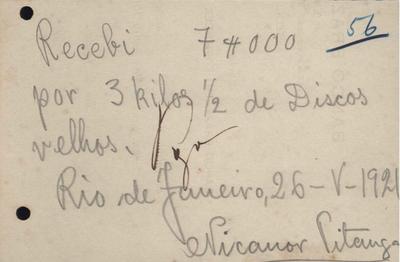 56
Recebi 7#000
por 3 kilos 1/2 de Discos
velhos.
Pago
Rio de Janeiro, 26-V-1921
Nicanor Pitanga